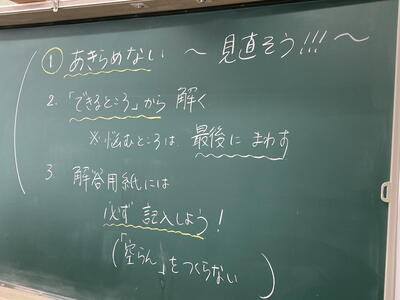 ① あきらめない ～ 見直そう!!! ～
2. 「できるところ」から 解く
※悩むところは 最後に まわす
3. 解答用紙には
必ず 記入しよう!
(「空らん」をつくらない )